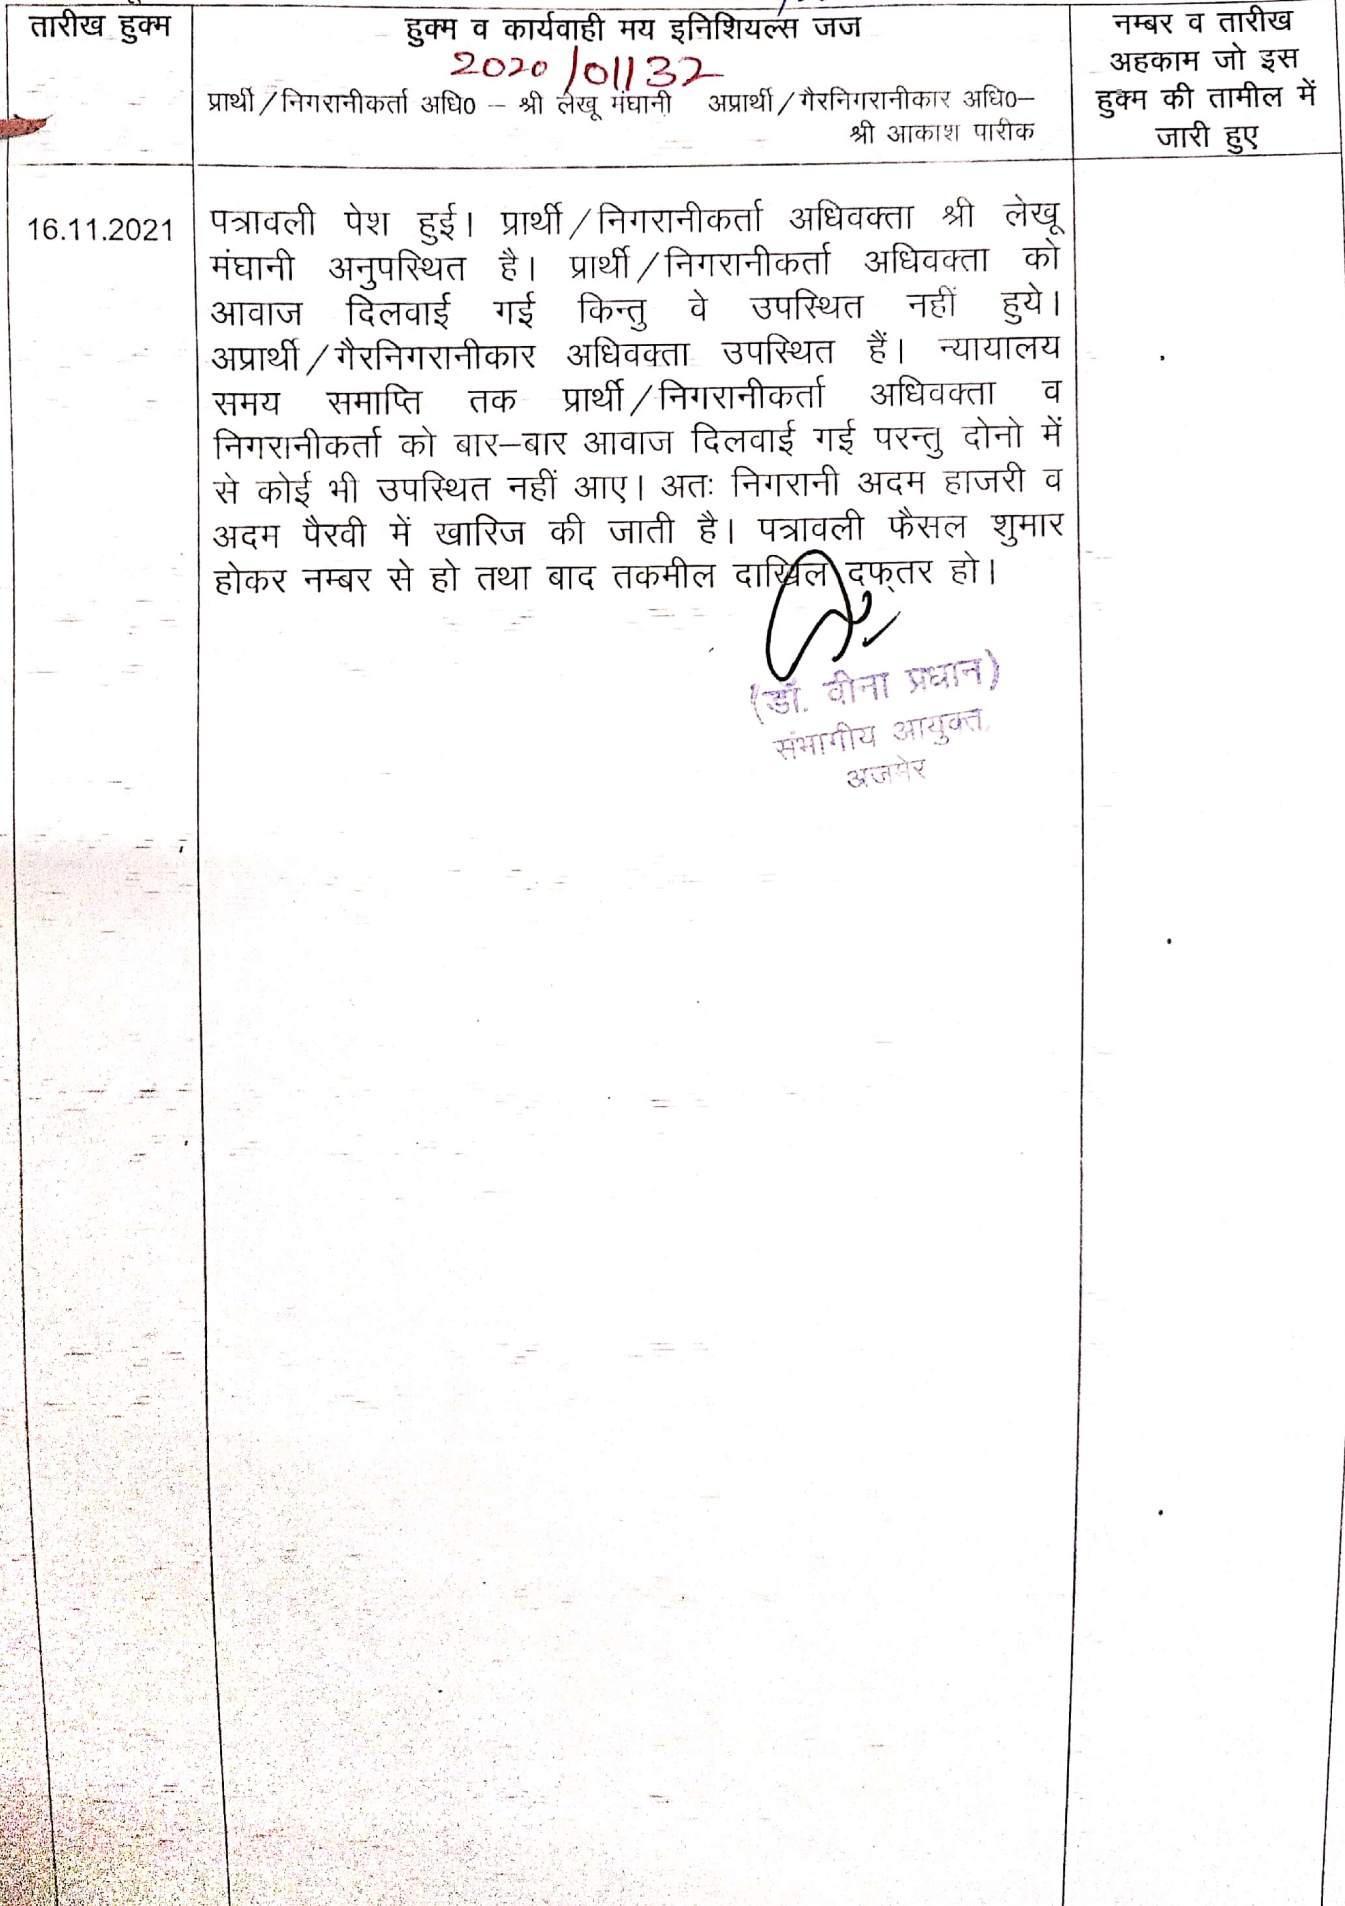 तारीख हुक्म
हुक्म व कार्यवाही मय इनिशियल्स जज
2020/01132
प्रार्थी/निगरानीकर्ता अधि0 – श्री लेखू मंघानी अप्रार्थी/गैरनिगरानीकार अधि0–
श्री आकाश पारीक
नम्बर व तारीख
अहकाम जो इस
हुक्म की तामील में
जारी हुए
16.11.2021
पत्रावली पेश हुई। प्रार्थी/निगरानीकर्ता अधिवक्ता श्री लेखू
मंघानी अनुपस्थित है। प्रार्थी/निगरानीकर्ता अधिवक्ता को
आवाज दिलवाई गई किन्तु वे उपस्थित नहीं हुये।
अप्रार्थी/गैरनिगरानीकार अधिवक्ता उपस्थित हैं। न्यायालय
समय समाप्ति तक प्रार्थी/निगरानीकर्ता अधिवक्ता व
निगरानीकर्ता को बार–बार आवाज दिलवाई गई परन्तु दोनो में
से कोई भी उपस्थित नहीं आए। अतः निगरानी अदम हाजरी व
अदम पैरवी में खारिज की जाती है। पत्रावली फैसल शुमार
होकर नम्बर से हो तथा बाद तकमील दाखिल दफ्तर हो।
(डॉ. वीना प्रधान)
संभागीय आयुक्त,
अजमेर